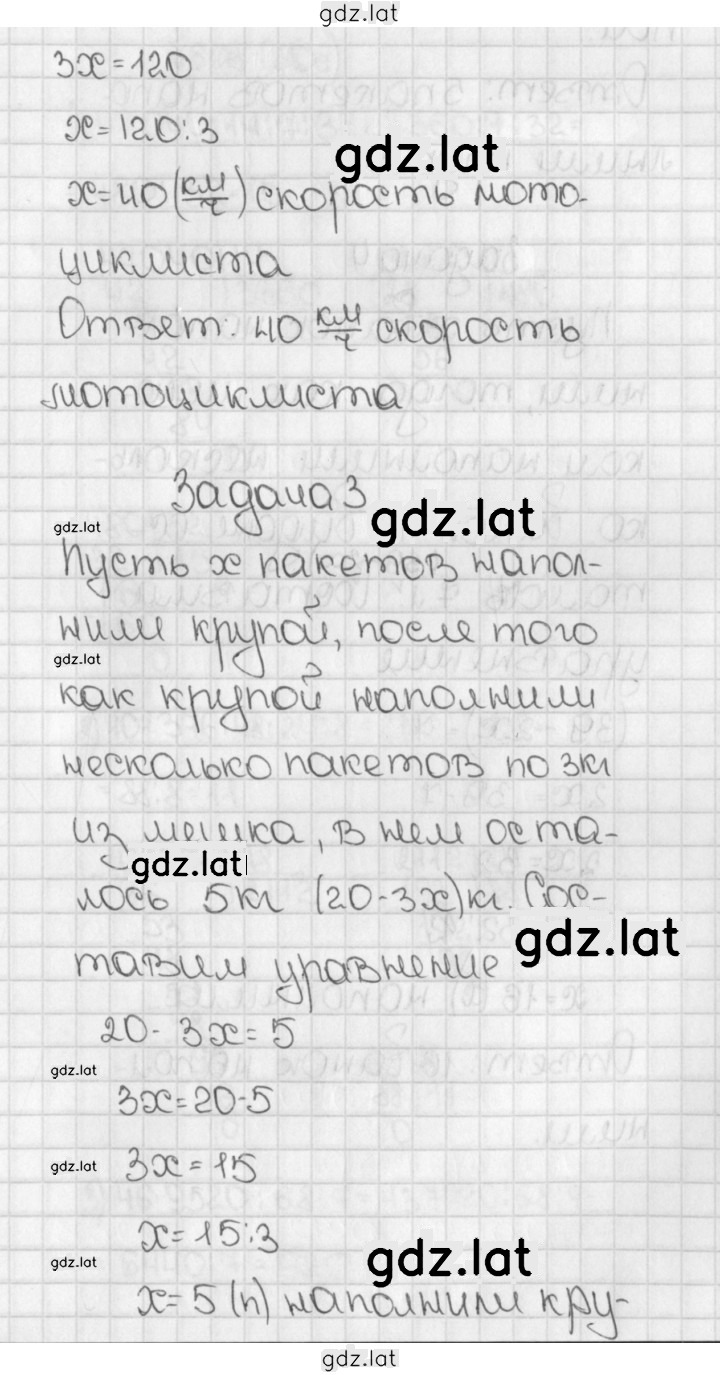 gdz.lat
3x=120
x=120:3
gdz.lat
x=40(км/ч) скорость мото-
циклиста
Ответ: 40 км/ч скорость
мотоциклиста
Задача 3
gdz.lat
gdz.lat
Пусть x пакетов напол-
нили крупой, после того
gdz.lat
как крупой наполнили
несколько пакетов по 3кг
из мешка, в нем оста-
gdz.lat
лось 5кг (20-3x)кг. Сос-
gdz.lat
тавим уравнение
20-3x=5
gdz.lat
3x=20-5
gdz.lat
3x=15
x=15:3
gdz.lat
gdz.lat
x=5(п) наполнили кру-
gdz.lat